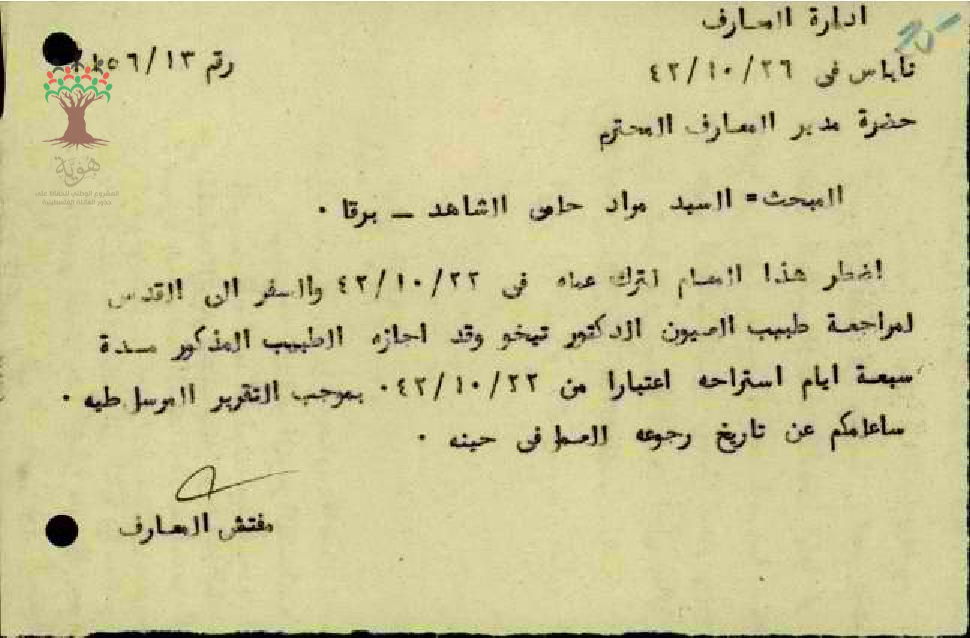 ادارة المعارف
نابلس في ٤٢/١٠/٢٦
رقم ١٣/٢٢٥٦
حضرة مدير المعارف المحترم
المبحث= السيد مراد حامى الشاهد - برقا ٠
اضطر هذا المعلم لترك عمله في ٤٢/١٠/٢٢ والسفر الى القدس
لمراجعة طبيب العيون الدكتور تيخو وقد اجازه الطبيب المذكور مدة
سبعة ايام استراحه اعتبارا من ٤٢/١٠/٢٢ ٠ بموجب التقرير المرسل طيه ٠
ساعلمكم عن تاريخ رجوعه العمل في حينه ٠
مفتش المعارف
هوية
المشروع الوطني للحفاظ على
جذور العائلة الفلسطينية